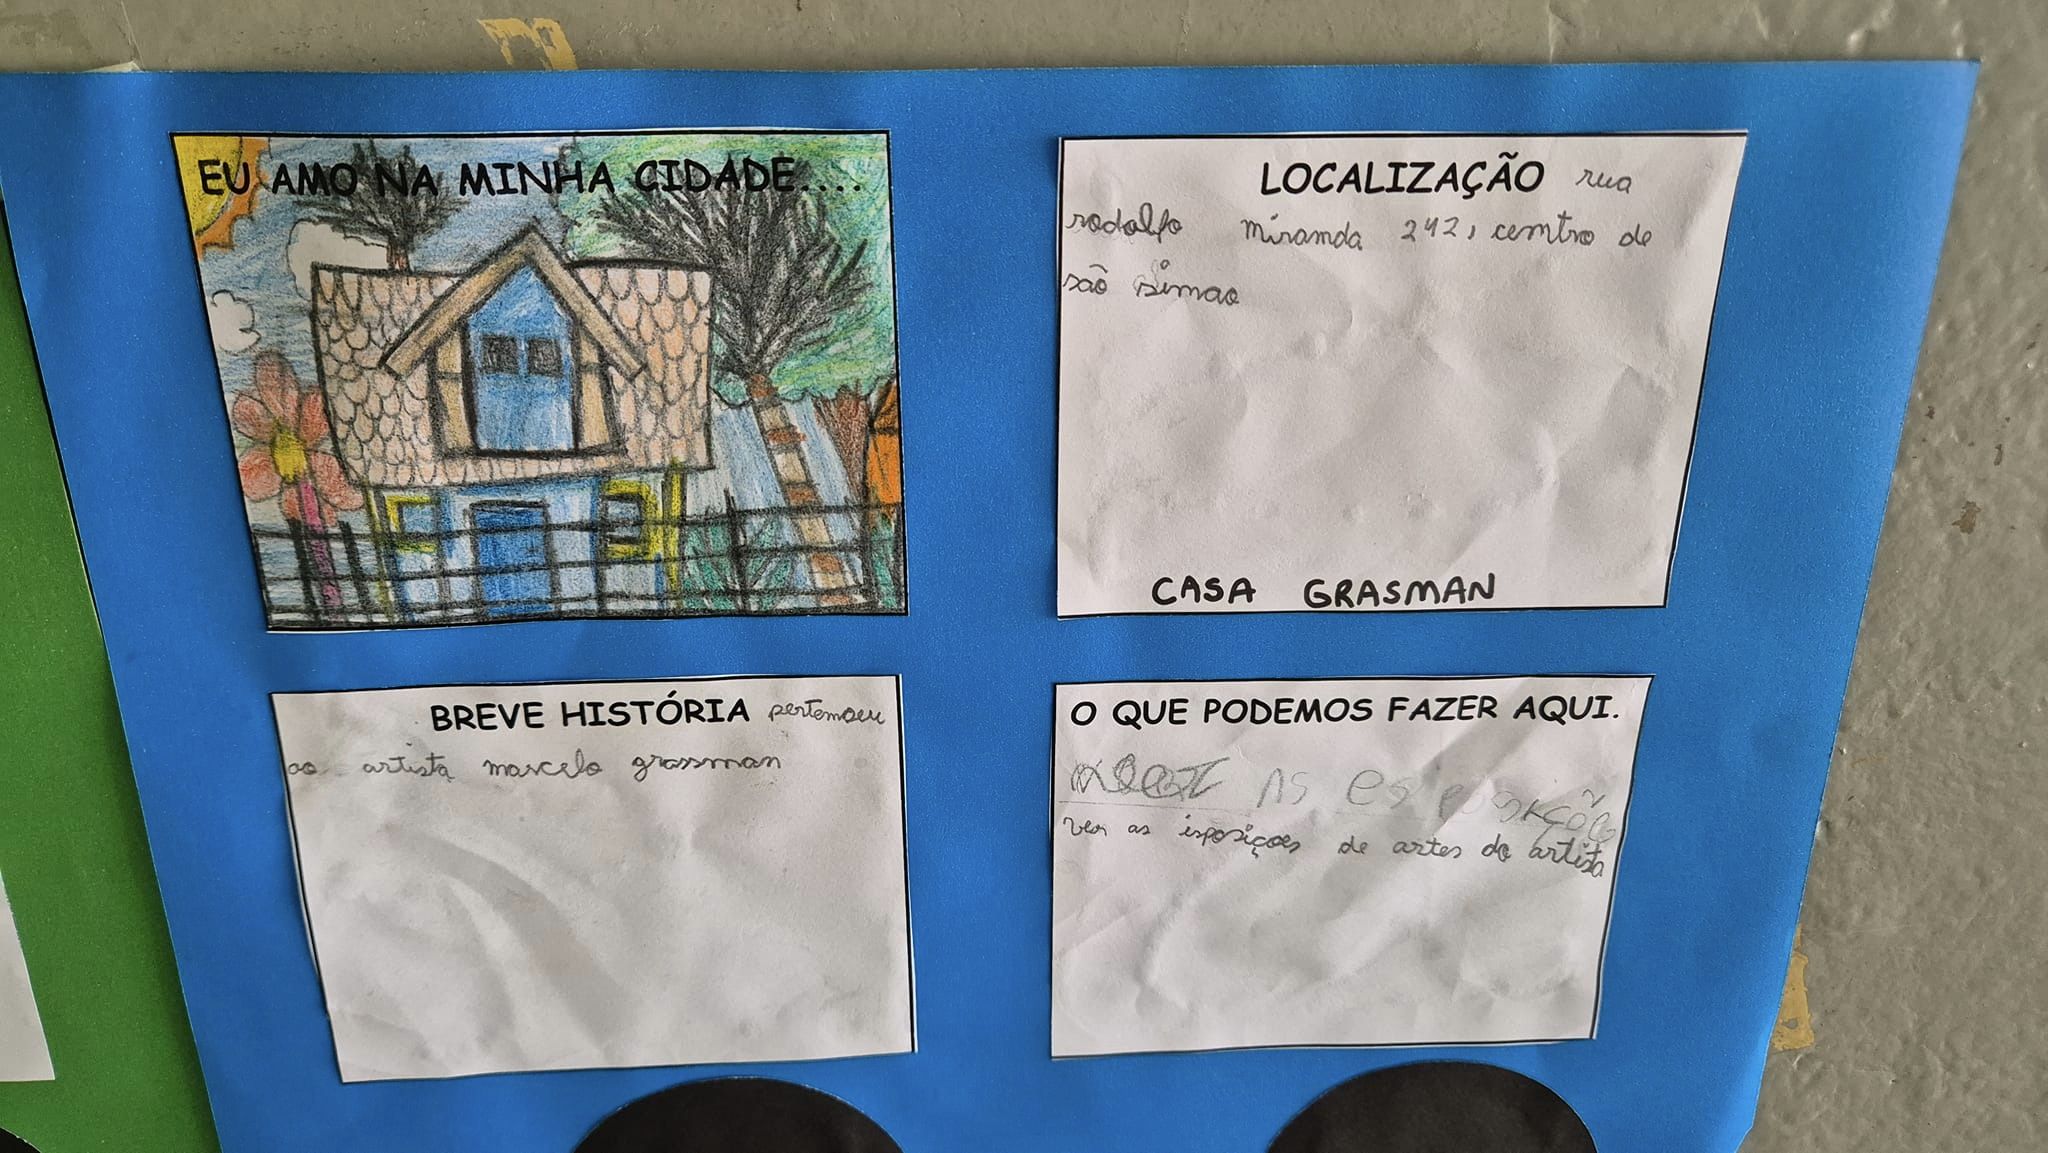 EU AMO NA MINHA CIDADE....
LOCALIZAÇÃO rua
rodolfo miranda 242, centro de
são simao
CASA GRASMAN
BREVE HISTÓRIA pertenceu
ao artista marcelo grassman
O QUE PODEMOS FAZER AQUI.
ver as isposiçoes de artes do artista